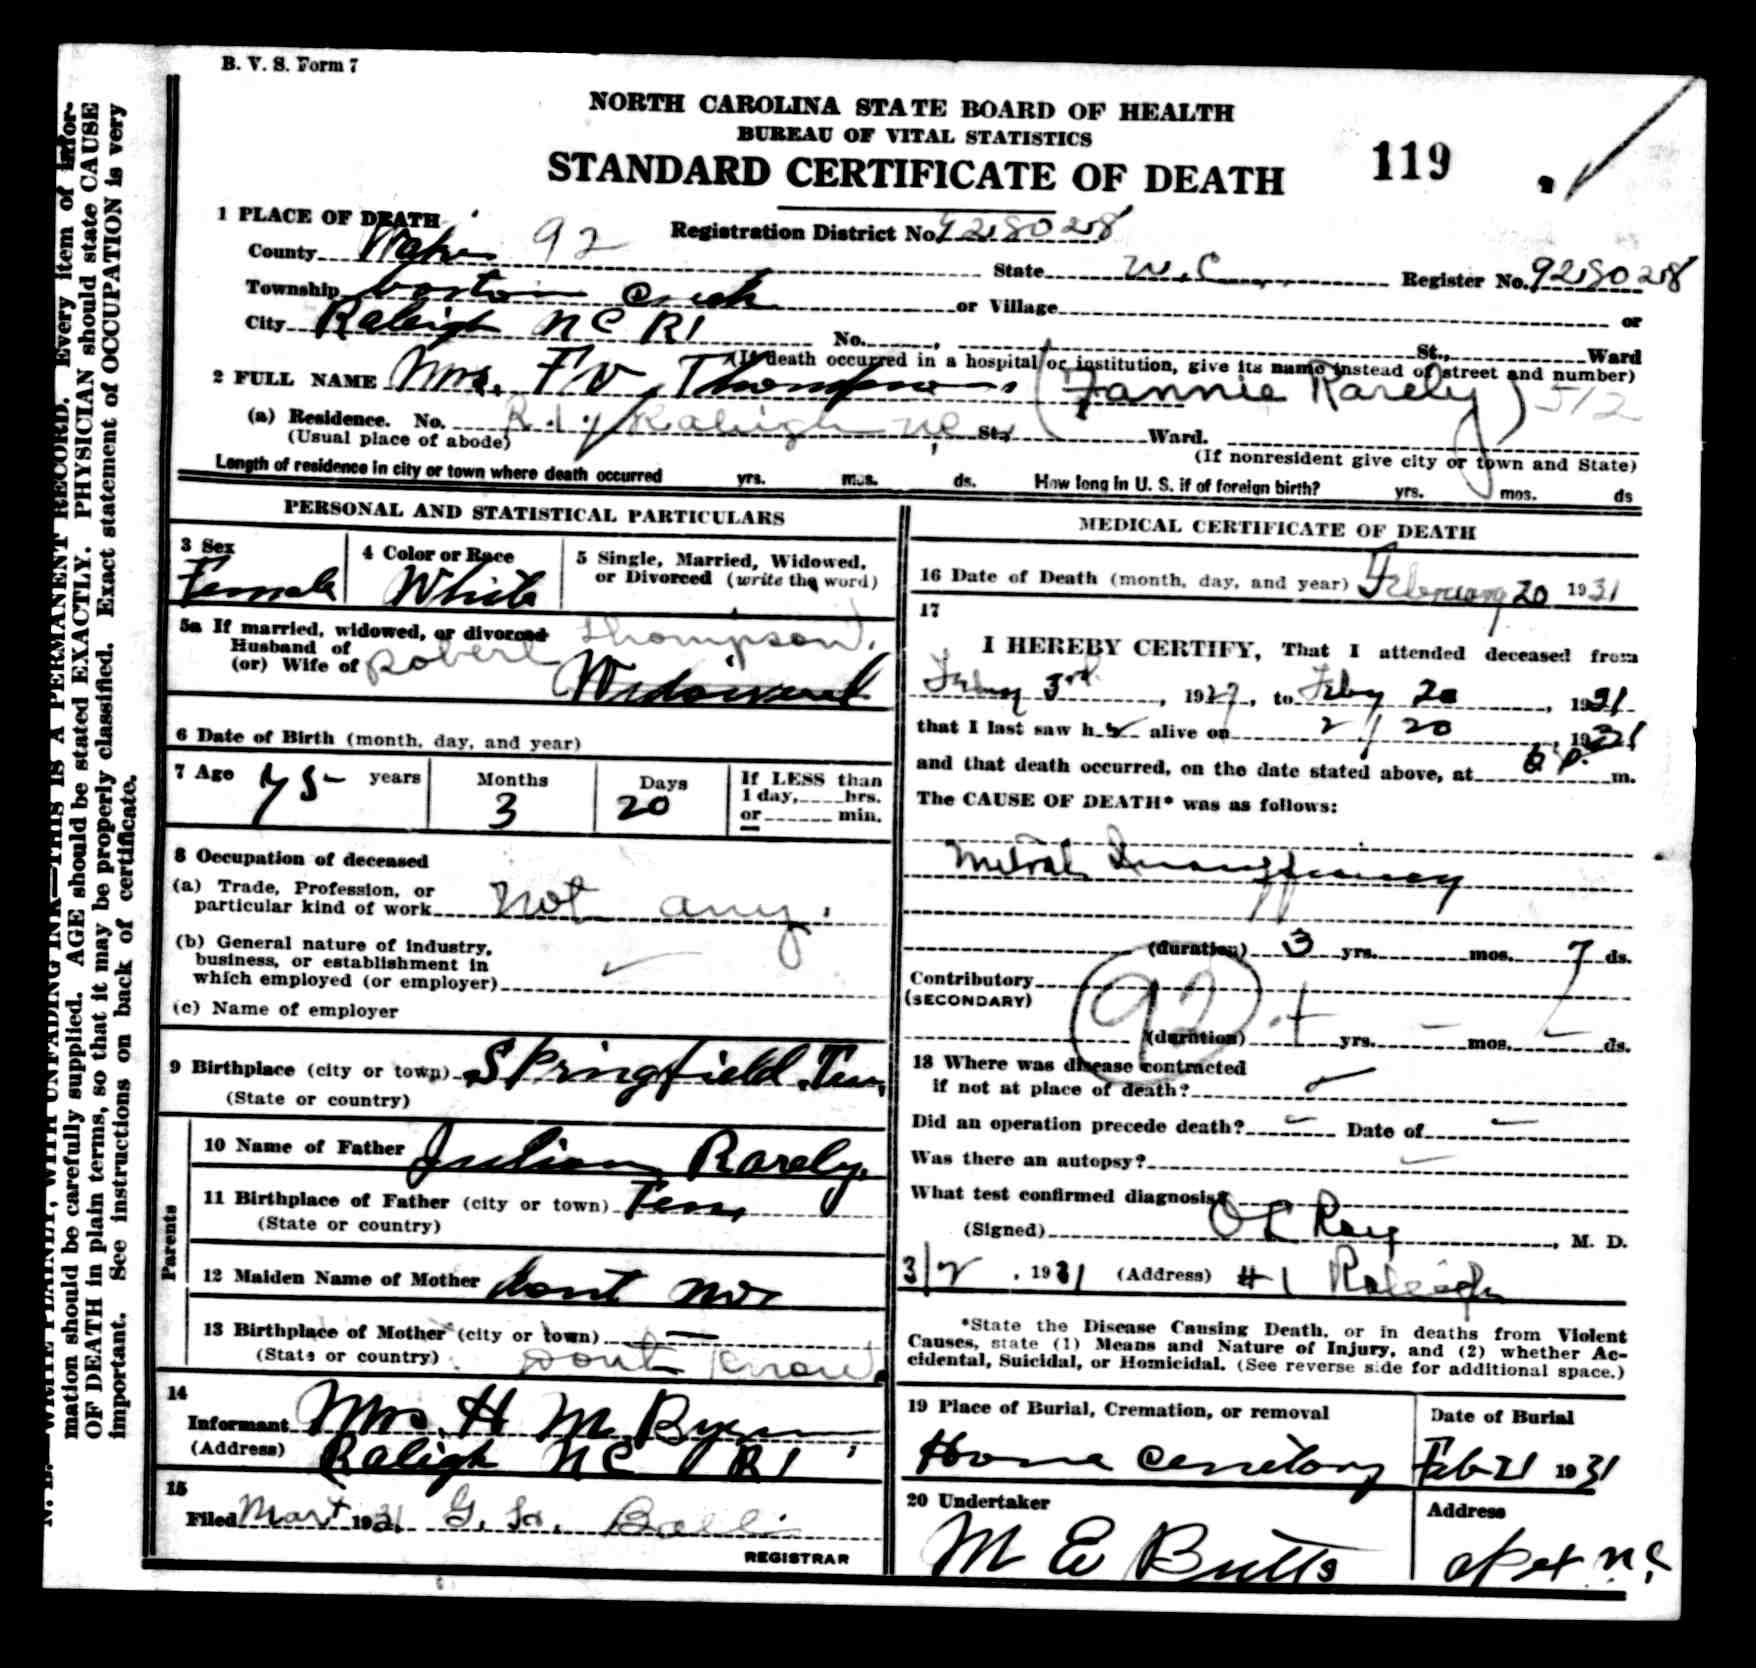 B. V. S. Form 7
NORTH CAROLINA STATE BOARD OF HEALTH
BUREAU OF VITAL STATISTICS
STANDARD CERTIFICATE OF DEATH
119
1 PLACE OF DEATH
Registration District No. 9280208
County Wake 92 State N.C. Register No. 9280208
Township Creek or Village or
City Raleigh NC R1 No. , St., Ward
(If death occurred in a hospital or institution, give its name instead of street and number)
2 FULL NAME Mrs. F V Thompson (Fannie Rarely) 512
(a) Residence. No. R. 1 / Raleigh NC St., Ward.
(Usual place of abode) (If nonresident give city or town and State)
Length of residence in city or town where death occurred yrs. mos. ds. How long in U. S. if of foreign birth? yrs. mos. ds
PERSONAL AND STATISTICAL PARTICULARS
3 Sex
Female
4 Color or Race
White
5 Single, Married, Widowed,
or Divorced (write the word)
5a If married, widowed, or divorced
Husband of
(or) Wife of Robert Thompson.
Widowed
6 Date of Birth (month, day, and year)
7 Age 75 years
Months
3
Days
20
If LESS than
1 day, hrs.
or min.
8 Occupation of deceased
(a) Trade, Profession, or
particular kind of work Not any.
(b) General nature of industry,
business, or establishment in
which employed (or employer)
(c) Name of employer
9 Birthplace (city or town) Springfield Ten,
(State or country)
Parents
10 Name of Father Julian Rarely.
11 Birthplace of Father (city or town) Ten,
(State or country)
12 Maiden Name of Mother dont
13 Birthplace of Mother (city or town) —
(State or country) Dont Know.
14
Informant Mrs. H M
(Address) Raleigh NC R1
15
Filed Mar 1931 G.
REGISTRAR
MEDICAL CERTIFICATE OF DEATH
16 Date of Death (month, day, and year) February 20 1931
17
I HEREBY CERTIFY, That I attended deceased from
Feby 3rd, 1927, to Feby 20, 1931
that I last saw her alive on 2/20, 1931
and that death occurred, on the date stated above, at P. m.
The CAUSE OF DEATH* was as follows:
Mitral Insufficiency
(duration) 3 yrs. mos. 7 ds.
Contributory
(SECONDARY)
92
(duration) yrs. — mos. ds.
18 Where was disease contracted
if not at place of death?
Did an operation precede death? – Date of –
Was there an autopsy?
What test confirmed diagnosis?
(Signed) O L Ray, M. D.
3/2, 1931 (Address) #1 Raleigh
*State the Disease Causing Death, or in deaths from Violent
Causes, state (1) Means and Nature of Injury, and (2) whether Ac-
cidental, Suicidal, or Homicidal. (See reverse side for additional space.)
19 Place of Burial, Cremation, or removal
Home Cemetery
Date of Burial
Feb 21 1931
20 Undertaker
M E Butts
Address
Apex N.C
N. B.—WRITE PLAINLY, WITH UNFADING INK—THIS IS A PERMANENT RECORD. Every item of infor-
mation should be carefully supplied. AGE should be stated EXACTLY. PHYSICIAN should state CAUSE
OF DEATH in plain terms, so that it may be properly classified. Exact statement of OCCUPATION is very
important. See instructions on back of certificate.